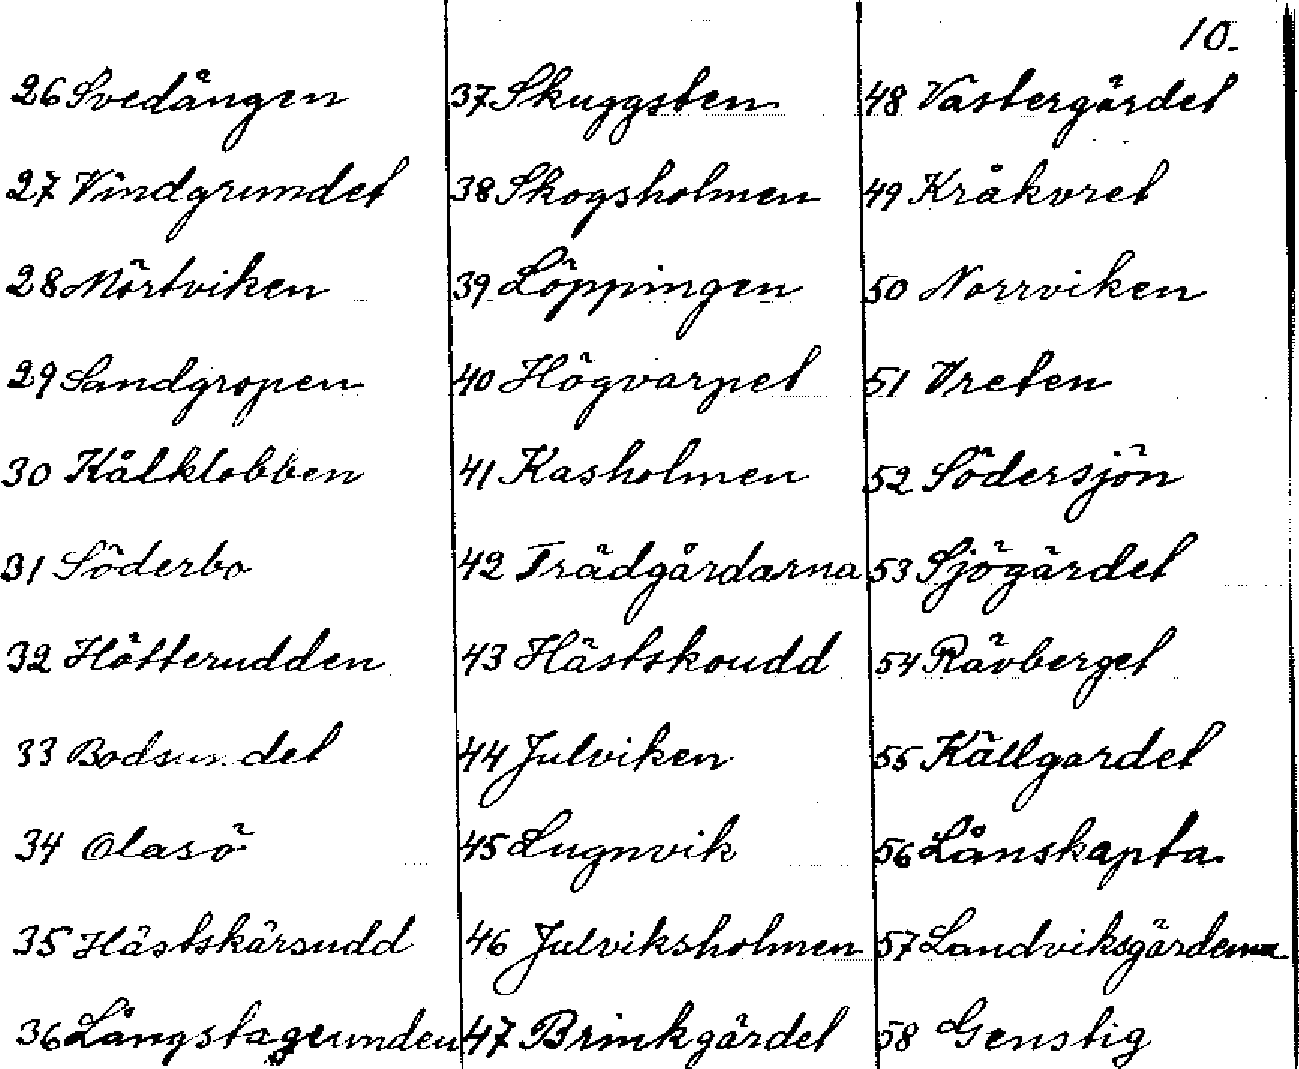 10.
26 Svedängen
27 Vindgrundet
28 Mörtviken
29 Sandgropen
30 Kålklobben
31 Söderbo
32 Hötterudden
33 Bodsundet
34 Olasö
35 Hästskärsudd
36 Långstagrunden
37 Skuggsten
38 Skogsholmen
39 Löppingen
40 Högvarpet
41 Kasholmen
42 Trädgårdarna
43 Hästskoudd
44 Julviken
45 Lugnvik
46 Julviksholmen
47 Brinkgärdet
48 Västergärdet
49 Kråkvret
50 Norrviken
51 Vreten
52 Södersjön
53 Sjögärdet
54 Rävberget
55 Källgardet
56 Långskapta
57 Landviksgärdena
58 Genstig